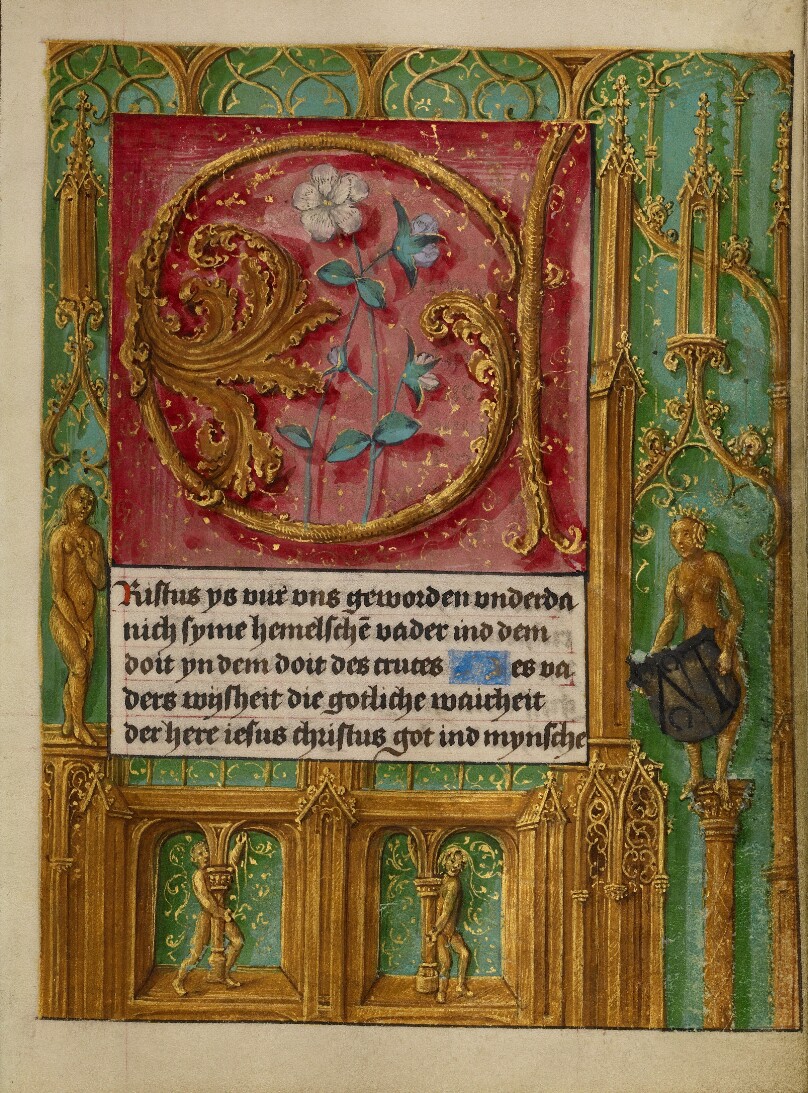 C
Ristus ys vur vns geworden vnderda
nich syme hemelschē vader ind dem
doit yn dem doit des cruces es va
ders wijsheit die gotliche wairheit
der here iesus christus got ind mynsche